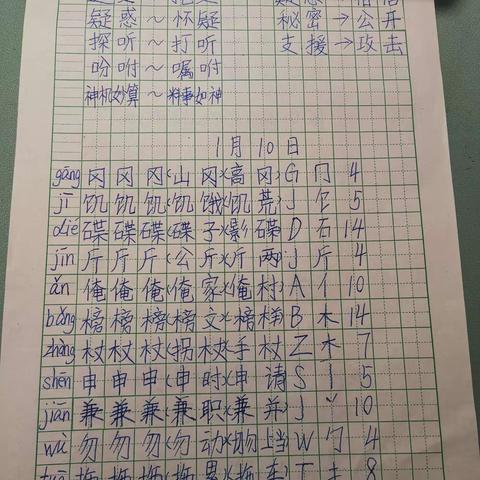 疑惑～怀疑 秘密→公开
探听～打听 支援→攻击
吩咐～嘱咐
神机妙算～料事如神
1月10日
gāng 冈 冈 冈(山冈)(高冈) G 冂 4
jī 饥 饥 饥(饥饿)(饥荒) J 饣 5
dié 碟 碟 碟(碟子)(影碟) D 石 14
jīn 斤 斤 斤(公斤)(斤两) J 斤 4
ǎn 俺 俺 俺(俺家)(俺村) A 亻 10
bǎng 榜 榜 榜(榜文)(榜样) B 木 14
zhàng 杖 杖 杖(拐杖)(手杖) Z 木 7
shēn 申 申 申(申时)(申请) S 丨 5
jiān 兼 兼 兼(兼职)(兼并) J 丷 10
wù 勿 勿 勿(勿动)(勿上当) W 勹 4
拖 拖 拖(拖累)(拖车) T 扌 8